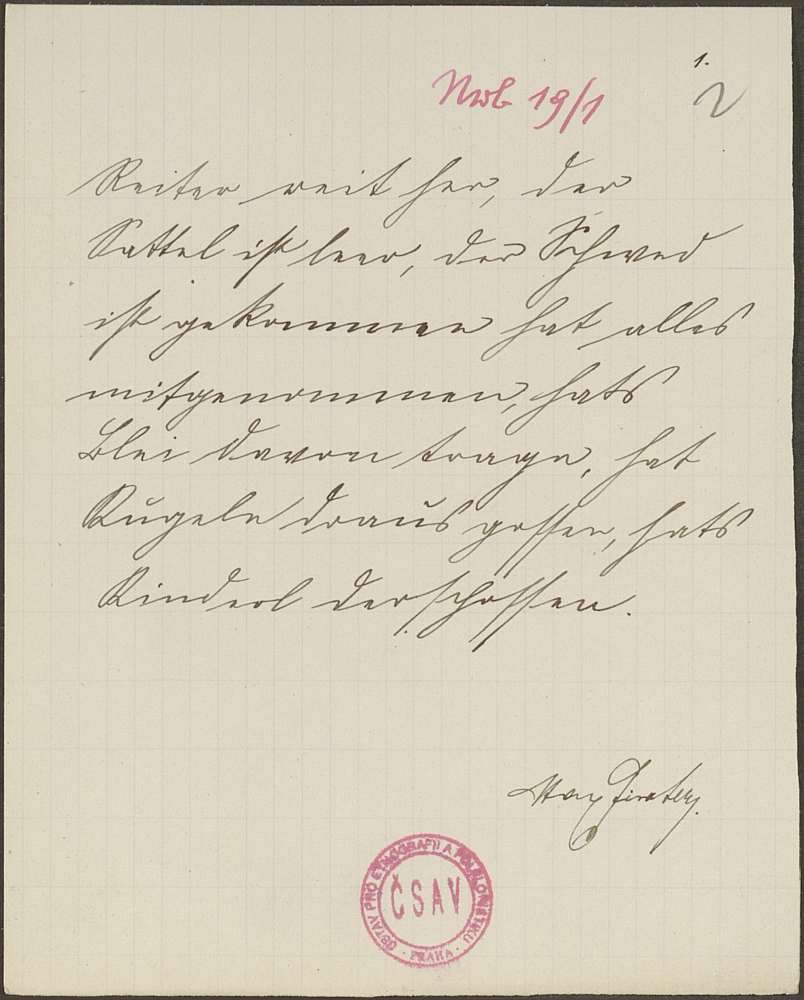 1.
Nwb 19/1
2
Reiter weit her, der
Sattel ist leer, der Schwed
ist gekommen hat alles
mitgenommen, hats
Blei davon trage, hat
Kugeln draus gossen, hats
Kinderl derschossen.
Max
ÚSTAV PRO ETNOGRAFII A FOLKLORISTIKU
ČSAV
· PRAHA ·